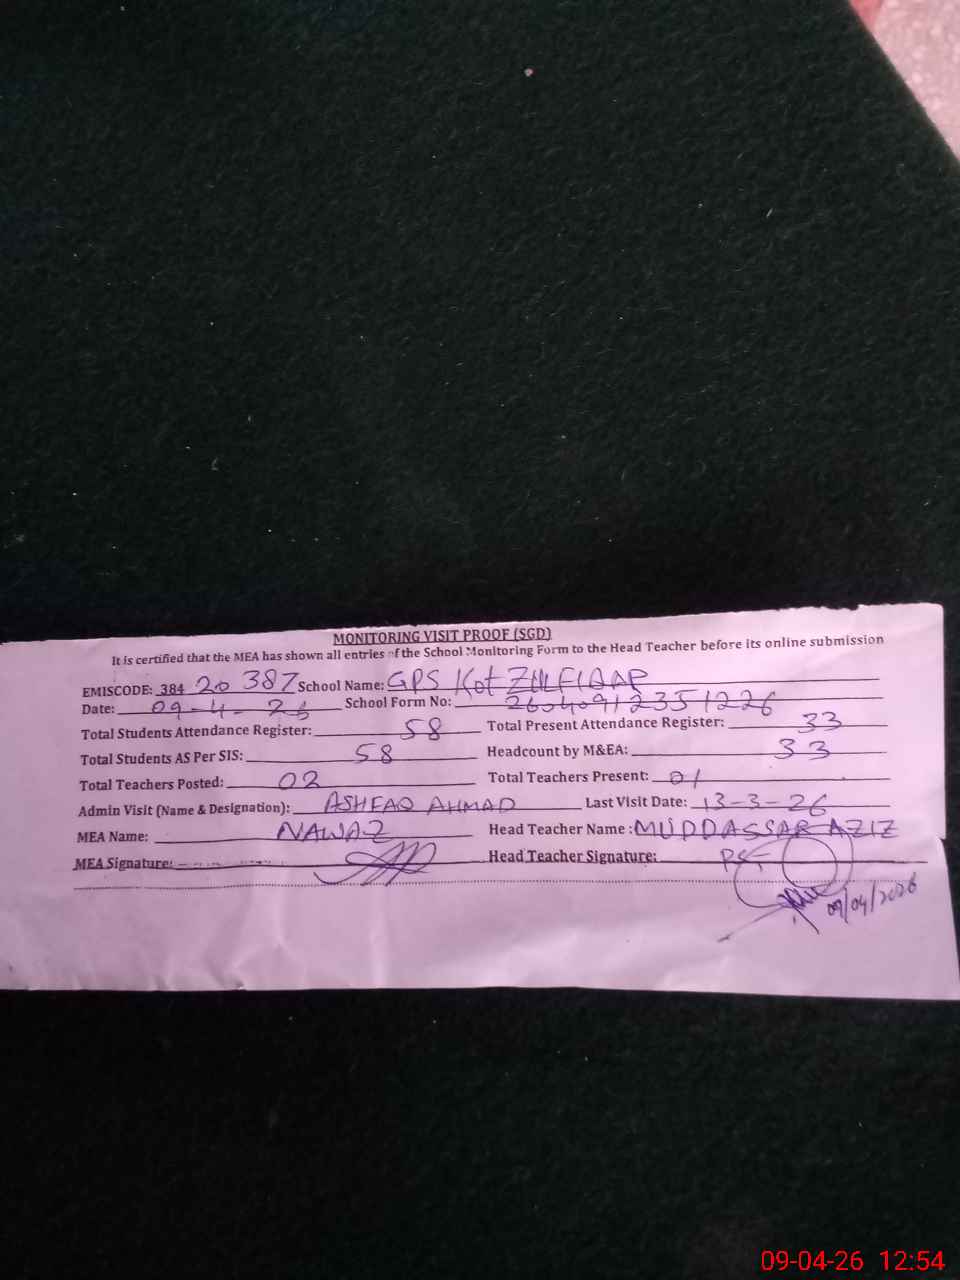 MONITORING VISIT PROOF (SGD)
It is certified that the MEA has shown all entries of the School Monitoring Form to the Head Teacher before its online submission
EMISCODE: 384 20387 School Name: GPS Kot ZULFIQAR
Date: 09-4-26 School Form No: 26040912351226
Total Students Attendance Register: 58 Total Present Attendance Register: 33
Total Students AS Per SIS: 58 Headcount by M&EA: 33
Total Teachers Posted: 02 Total Teachers Present: 01
Admin Visit (Name & Designation): ASHFAQ AHMAD Last Visit Date: 13-3-26
MEA Name: NAWAZ Head Teacher Name: MUDDASSAR AZIZ
MEA Signature: Head Teacher Signature: PST
09/04/2026
09-04-26 12:54